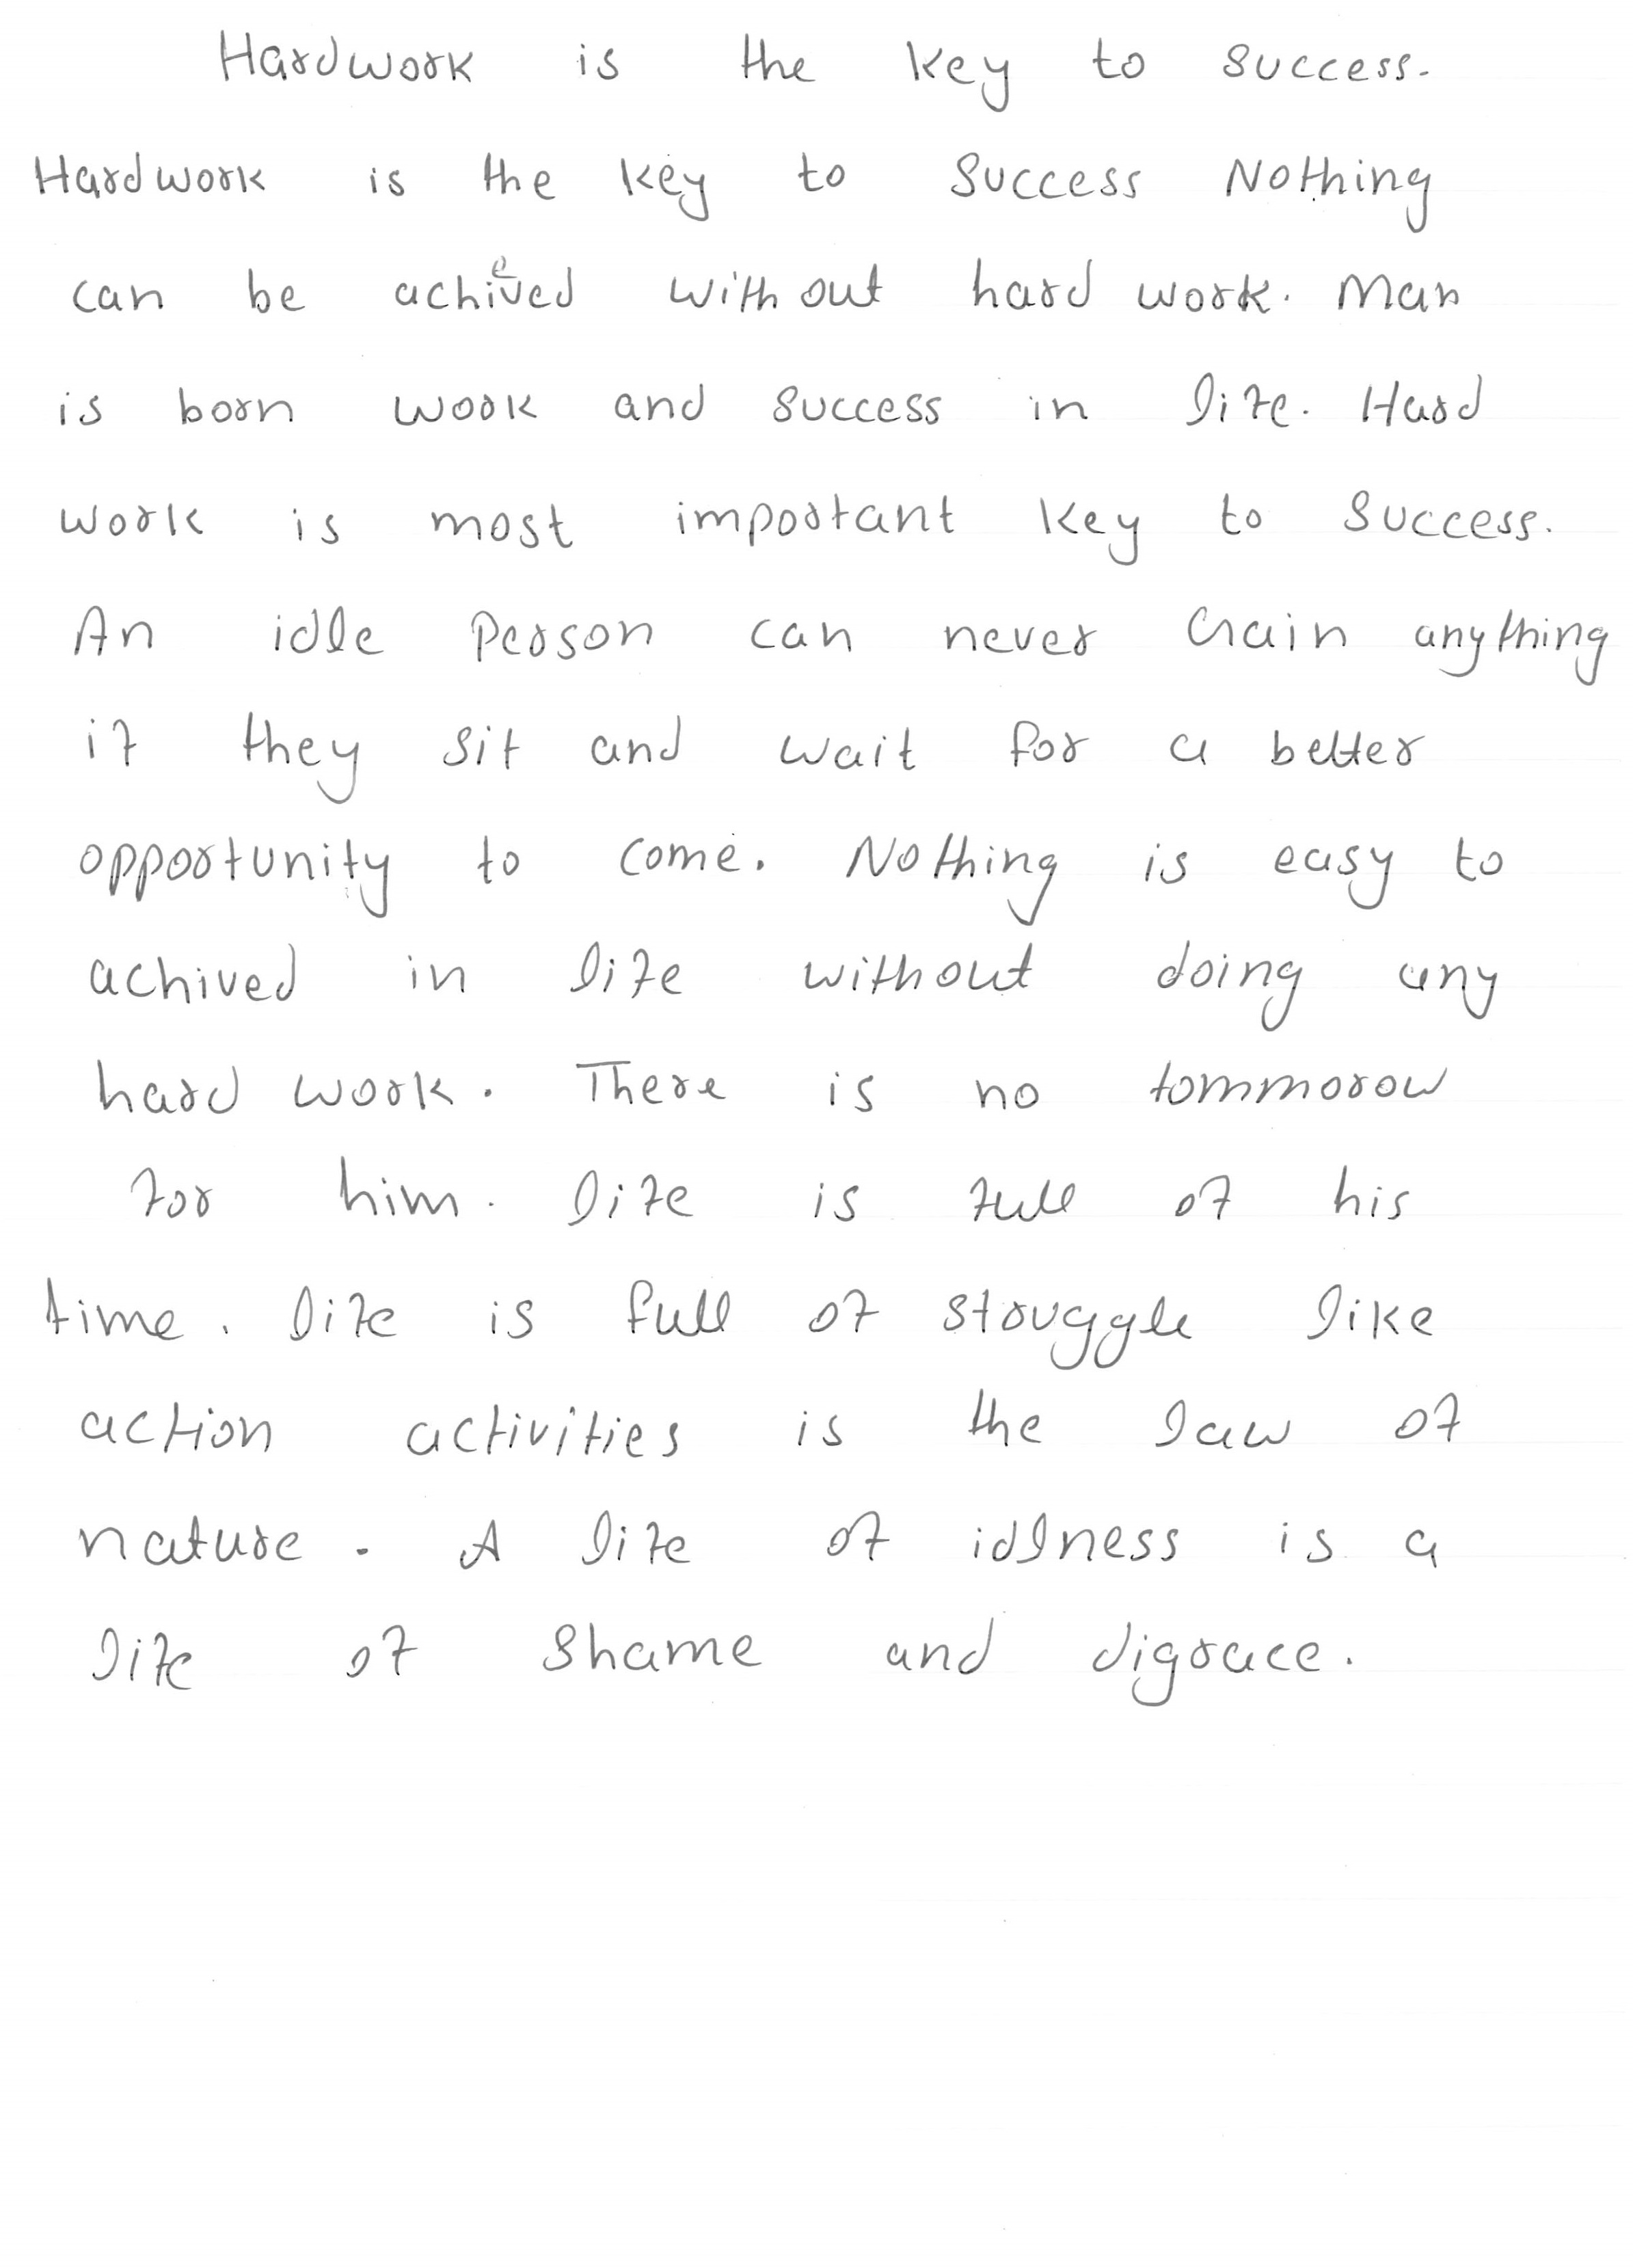 Hardwork is the key to success.
Hardwork is the key to success Nothing
can be achieved without hard work. Man
is born work and success in life. Hard
work is most important key to success.
An idle person can never Gain anything
if they sit and wait for a better
opportunity to come. Nothing is easy to
achived in life without doing any
hard work. There is no tommorow
for him. life is full of his
time. life is full of struggle like
action activities is the law of
nature. A life of idlness is a
life of shame and digrace.